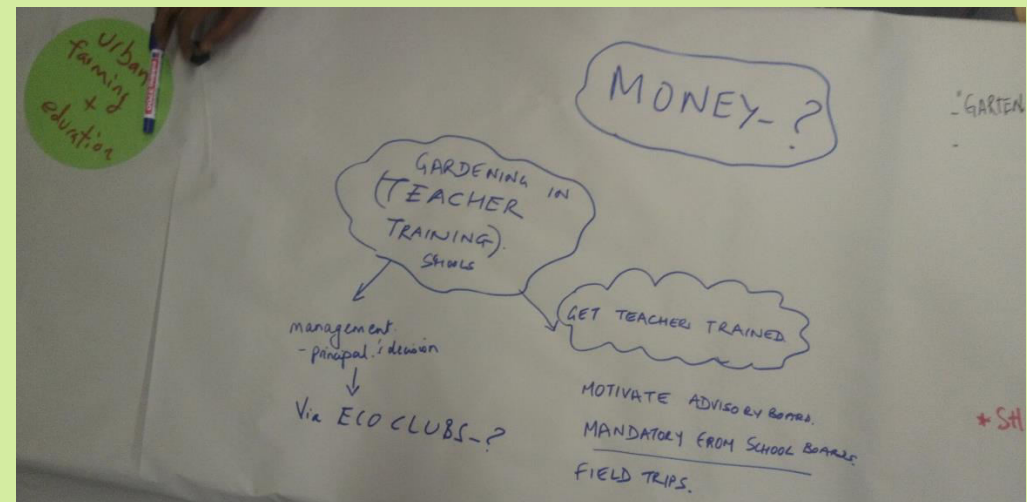 urban
farming
+
education
MONEY_ ?
"GARTEN
-
GARDENING IN
(TEACHER
TRAINING).
SCHOOLS
management.
- principal's decision
Via ECO CLUBS_?
GET TEACHERS TRAINED
MOTIVATE ADVISORY BOARD.
MANDATORY FROM SCHOOL BOARDS.
FIELD TRIPS.
* SH